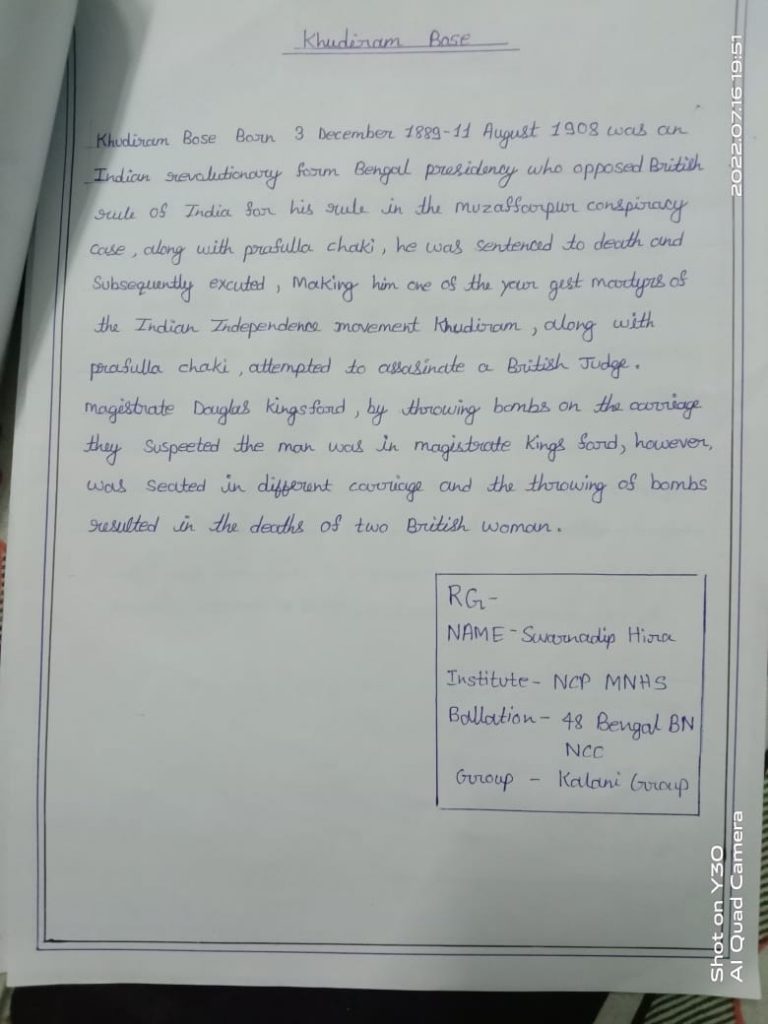 Khudiram Bose
Khudiram Bose Born 3 December 1889-11 August 1908 was an
Indian revolutionary form Bengal presidency who opposed British
rule of India for his rule in the muzaffarpur conspiracy
case, along with prafulla chaki, he was sentenced to death and
Subsequently excuted, Making him one of the your gest martyrs of
the Indian Independence movement Khudiram, along with
prafulla chaki, attempted to assasinate a British Judge.
magistrate Douglas kingsford, by throwing bombs on the carriage
they suspeeted the man was in magistrate Kings ford, however,
was seated in different carriage and the throwing of bombs
resulted in the deaths of two British woman.
RG-
NAME - Swarnadip Hira
Institute - NCP MNHS
Ballation - 48 Bengal BN
NCC
Group - Kalani Group
2022.07.16 19:51
Shot on Y30
AI Quad Camera